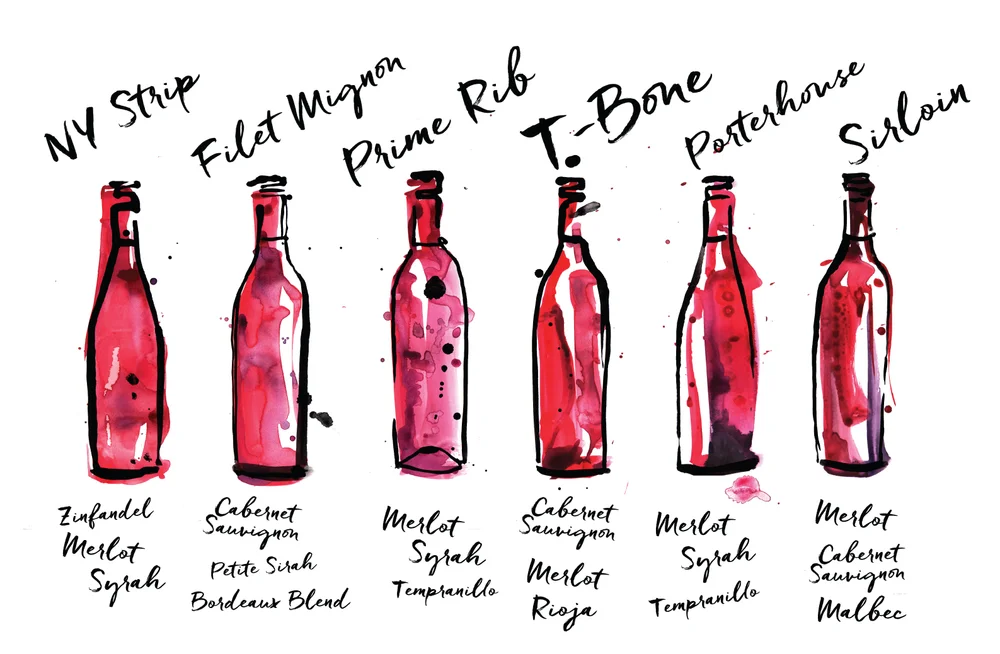 NY Strip
Filet Mignon
Prime Rib
T.-Bone
Porterhouse
Sirloin
Zinfandel
Merlot
Syrah
Cabernet
Sauvignon
Petite Sirah
Bordeaux Blend
Merlot
Syrah
Tempranillo
Cabernet
Sauvignon
Merlot
Rioja
Merlot
Syrah
Tempranillo
Merlot
Cabernet
Sauvignon
Malbec